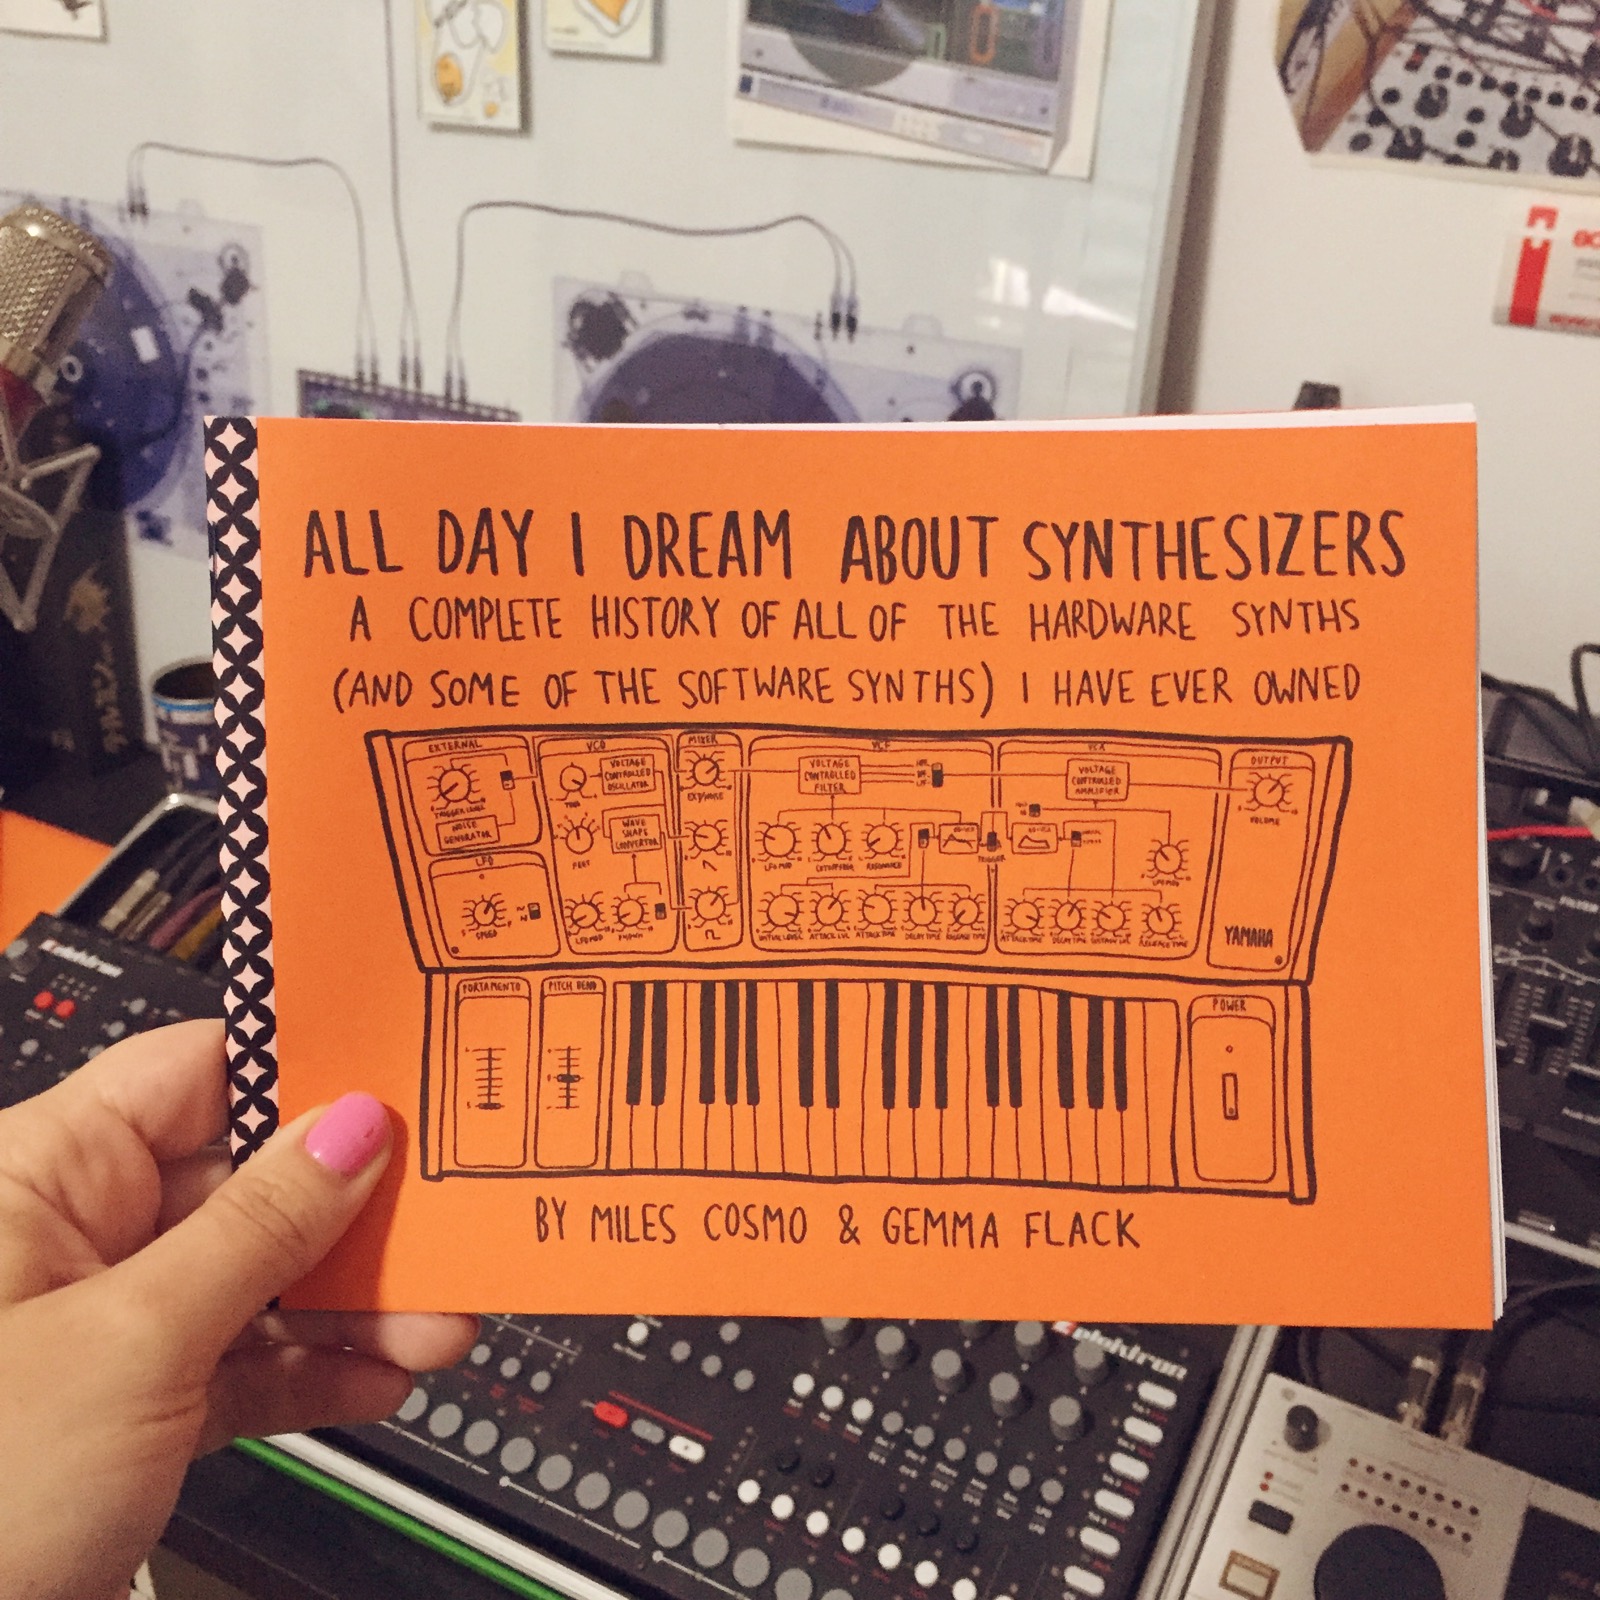 ALL DAY I DREAM ABOUT SYNTHESIZERS
A COMPLETE HISTORY OF ALL OF THE HARDWARE SYNTHS
(AND SOME OF THE SOFTWARE SYNTHS) I HAVE EVER OWNED
EXTERNAL
VCO
MIXER
VCF
VCA
OUTPUT
TRIGGER LEVEL
NOISE
GENERATOR
VOLTAGE
CONTROLLED
OSCILLATOR
FEET
WAVE
SHAPE
CONVERTOR
EXT/NOISE
VOLTAGE
CONTROLLED
FILTER
LFO MOD
RESONANCE
TRIGGER
VOLTAGE
CONTROLLED
AMPLIFIER
LFO MOD
VOLUME
LFO
SPEED
LFO MOD
INITIAL LEVEL
ATTACK LVL
ATTACK TIME
DECAY TIME
RELEASE TIME
ATTACK TIME
DECAY TIME
SUSTAIN LVL
RELEASE TIME
YAMAHA
PORTAMENTO
PITCH BEND
POWER
BY MILES COSMO & GEMMA FLACK
elektron
elektron
FILTER